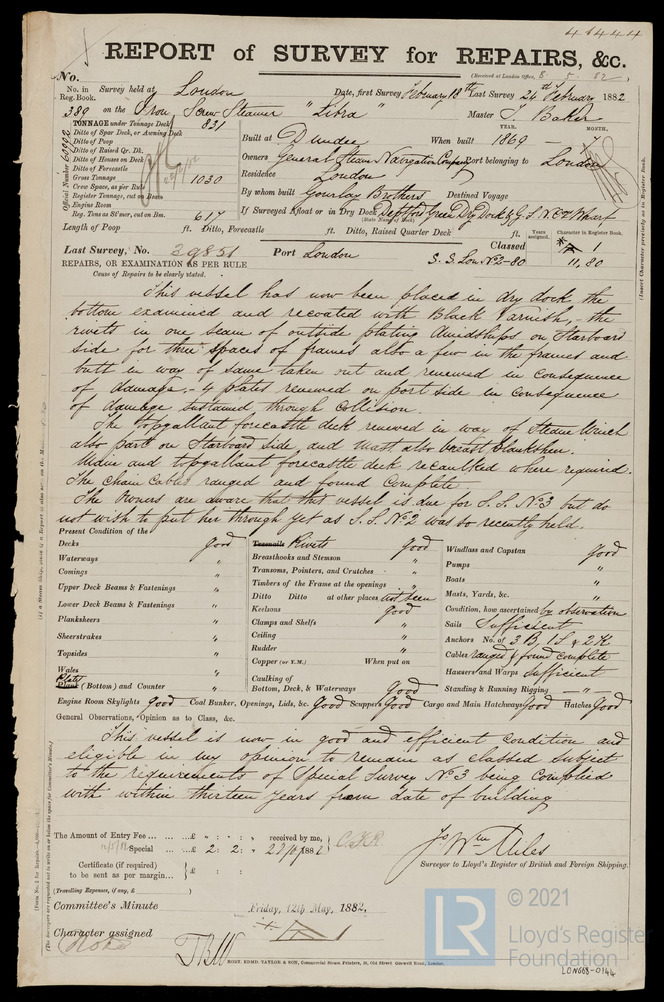 41444
REPORT of SURVEY for REPAIRS, &c.
(Received at London Office, 8. 5. 82.)
No.
No. in Reg. Book. Survey held at London Date, first Survey February 18th Last Survey 24th February 1882
389 on the Iron Screw Steamer "Libra" Master T. Baker
TONNAGE under Tonnage Deck 831
Ditto of Spar Deck, or Awning Deck
Ditto of Poop
Ditto of Raised Qr. Dk.
Ditto of Houses on Deck
Ditto of Forecastle
Gross Tonnage 1030
Crew Space, as per Rule
Register Tonnage, cut on Beam
Engine Room
Reg. Tons as St'mer, cut on Bm. 617
Official Number 60992
YEAR. MONTH.
Built at Dundee When built 1869 - 7
Owners General Steam Navigation Company Port belonging to London
Residence London
By whom built Gourlay Brothers Destined Voyage
If Surveyed Afloat or in Dry Dock Deptford Green Dry Dock & G. S. N. Co's Wharf
(State Name of Dock)
Length of Poop ft. Ditto, Forecastle ft. Ditto, Raised Quarter Deck ft.
Years assigned. Character in Register Book.
Last Survey, No. 39851 Port London Classed 1
S. S. Lon No 2-80 11,80
REPAIRS, OR EXAMINATION AS PER RULE
Cause of Repairs to be clearly stated.
(Insert Character precisely as in Register Book.)
This vessel has now been placed in dry dock the
bottom examined and recoated with Black Varnish, - the
rivets in one seam of outside plating Amidships on Starboard
side for three spaces of frames also a few in the frames and
butt in way of same taken out and renewed in consequence
of damage. - 4 plates renewed on port side in consequence
of damage sustained through collision.
The topgallant forecastle deck renewed in way of Steam Winch
also part on Starboard side and Mast, also breast plancksheer.
Main and topgallant forecastle deck recaulked where required.
The chain cables ranged and found complete.
The Owners are aware that this vessel is due for S. S. No 3 but do
not wish to put her through yet as S. S. No 2 was so recently held.
Present Condition of the
Decks Good
Waterways "
Comings "
Upper Deck Beams & Fastenings "
Lower Deck Beams & Fastenings "
Planksheers "
Sheerstrakes "
Topsides "
Wales "
Plates Plank (Bottom) and Counter "
Treenails Rivets Good
Breasthooks and Stemson "
Transoms, Pointers, and Crutches "
Timbers of the Frame at the openings "
Ditto Ditto at other places not seen
Keelsons Good
Clamps and Shelfs "
Ceiling "
Rudder "
Copper (or Y.M.) When put on
Caulking of
Bottom, Deck, & Waterways Good
Windlass and Capstan Good
Pumps "
Boats "
Masts, Yards, &c. "
Condition, how ascertained by observation
Sails Sufficient
Anchors No. of 3 B. 1 S. & 2 K
Cables ranged & found complete
Hawsers and Warps Sufficient
Standing & Running Rigging - " -
Engine Room Skylights Good Coal Bunker, Openings, Lids, &c. Good Scuppers Good Cargo and Main Hatchways Good Hatches Good
General Observations, Opinion as to Class, &c.
This vessel is now in good and efficient condition and
eligible in my opinion to remain as classed subject
to the requirements of Special Survey No 3 being complied
with within thirteen years from date of building
The Amount of Entry Fee ... ... £ " : " : " received by me,
Special ... £ 2 : 2 : "
Certificate (if required)
to be sent as per margin... £ :
(Travelling Expenses, if any, £ )
Surveyor to Lloyd's Register of British and Foreign Shipping.
Committee's Minute Friday, 12th May, 1882.
Character assigned
ROBT. EDMD. TAYLOR & SON, Commercial Steam Printers, 19, Old Street Goswell Road, London.
LR
© 2021
Lloyd's Register
Foundation
LON668-0144